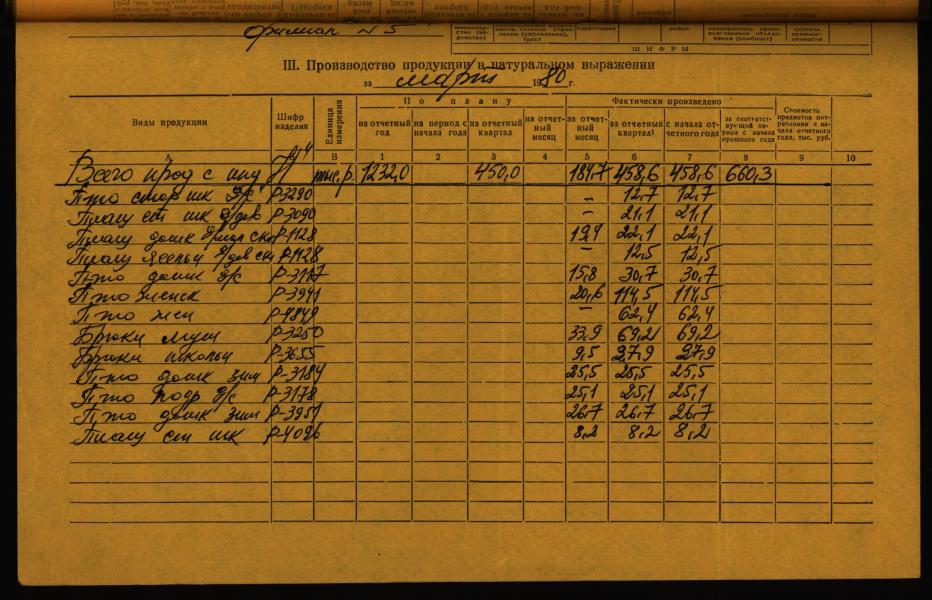 филиал N 5
ШИФРЫ
III. Производство продукции в натуральном выражении
за март 1980 г.
Виды продукции
Шифр изделия
Единица измерения
По плану
на отчетный год
на период с начала года
на отчетный квартал
на отчетный месяц
Фактически произведено
за отчетный месяц
за отчетный квартал
с начала отчетного года
за соответствующий период с начала прошлого года
Стоимость предметов потребления с начала отчетного года, тыс. руб.
А Б В 1 2 3 4 5 6 7 8 9 10
Всего прод с инд "Н" тыс.р. 1232,0 450,0 184,7 458,6 458,6 660,3
П-то шк Р-3290 – 12,7 12,7
Плащ шк Р-3090 – 21,1 21,1
Плащ дошк Р-1128 19,4 22,1 22,1
Плащ Р-1128 – 12,5 12,5
П-то дошк д/с 15,8 30,7 30,7
П-то женск Р-3941 20,6 114,5 114,5
П-то жен Р-4849 – 62,4 62,4
Брюки муж Р-3250 33,9 69,2 69,2
Брюки школьн Р-3655 9,5 27,9 27,9
П-то дошк зим Р-3184 25,5 25,5 25,5
П-то подр д/с Р-3178 25,1 25,1 25,1
П-то дошк зим Р-3951 26,7 26,7 26,7
Плащ шк Р-4096 8,2 8,2 8,2